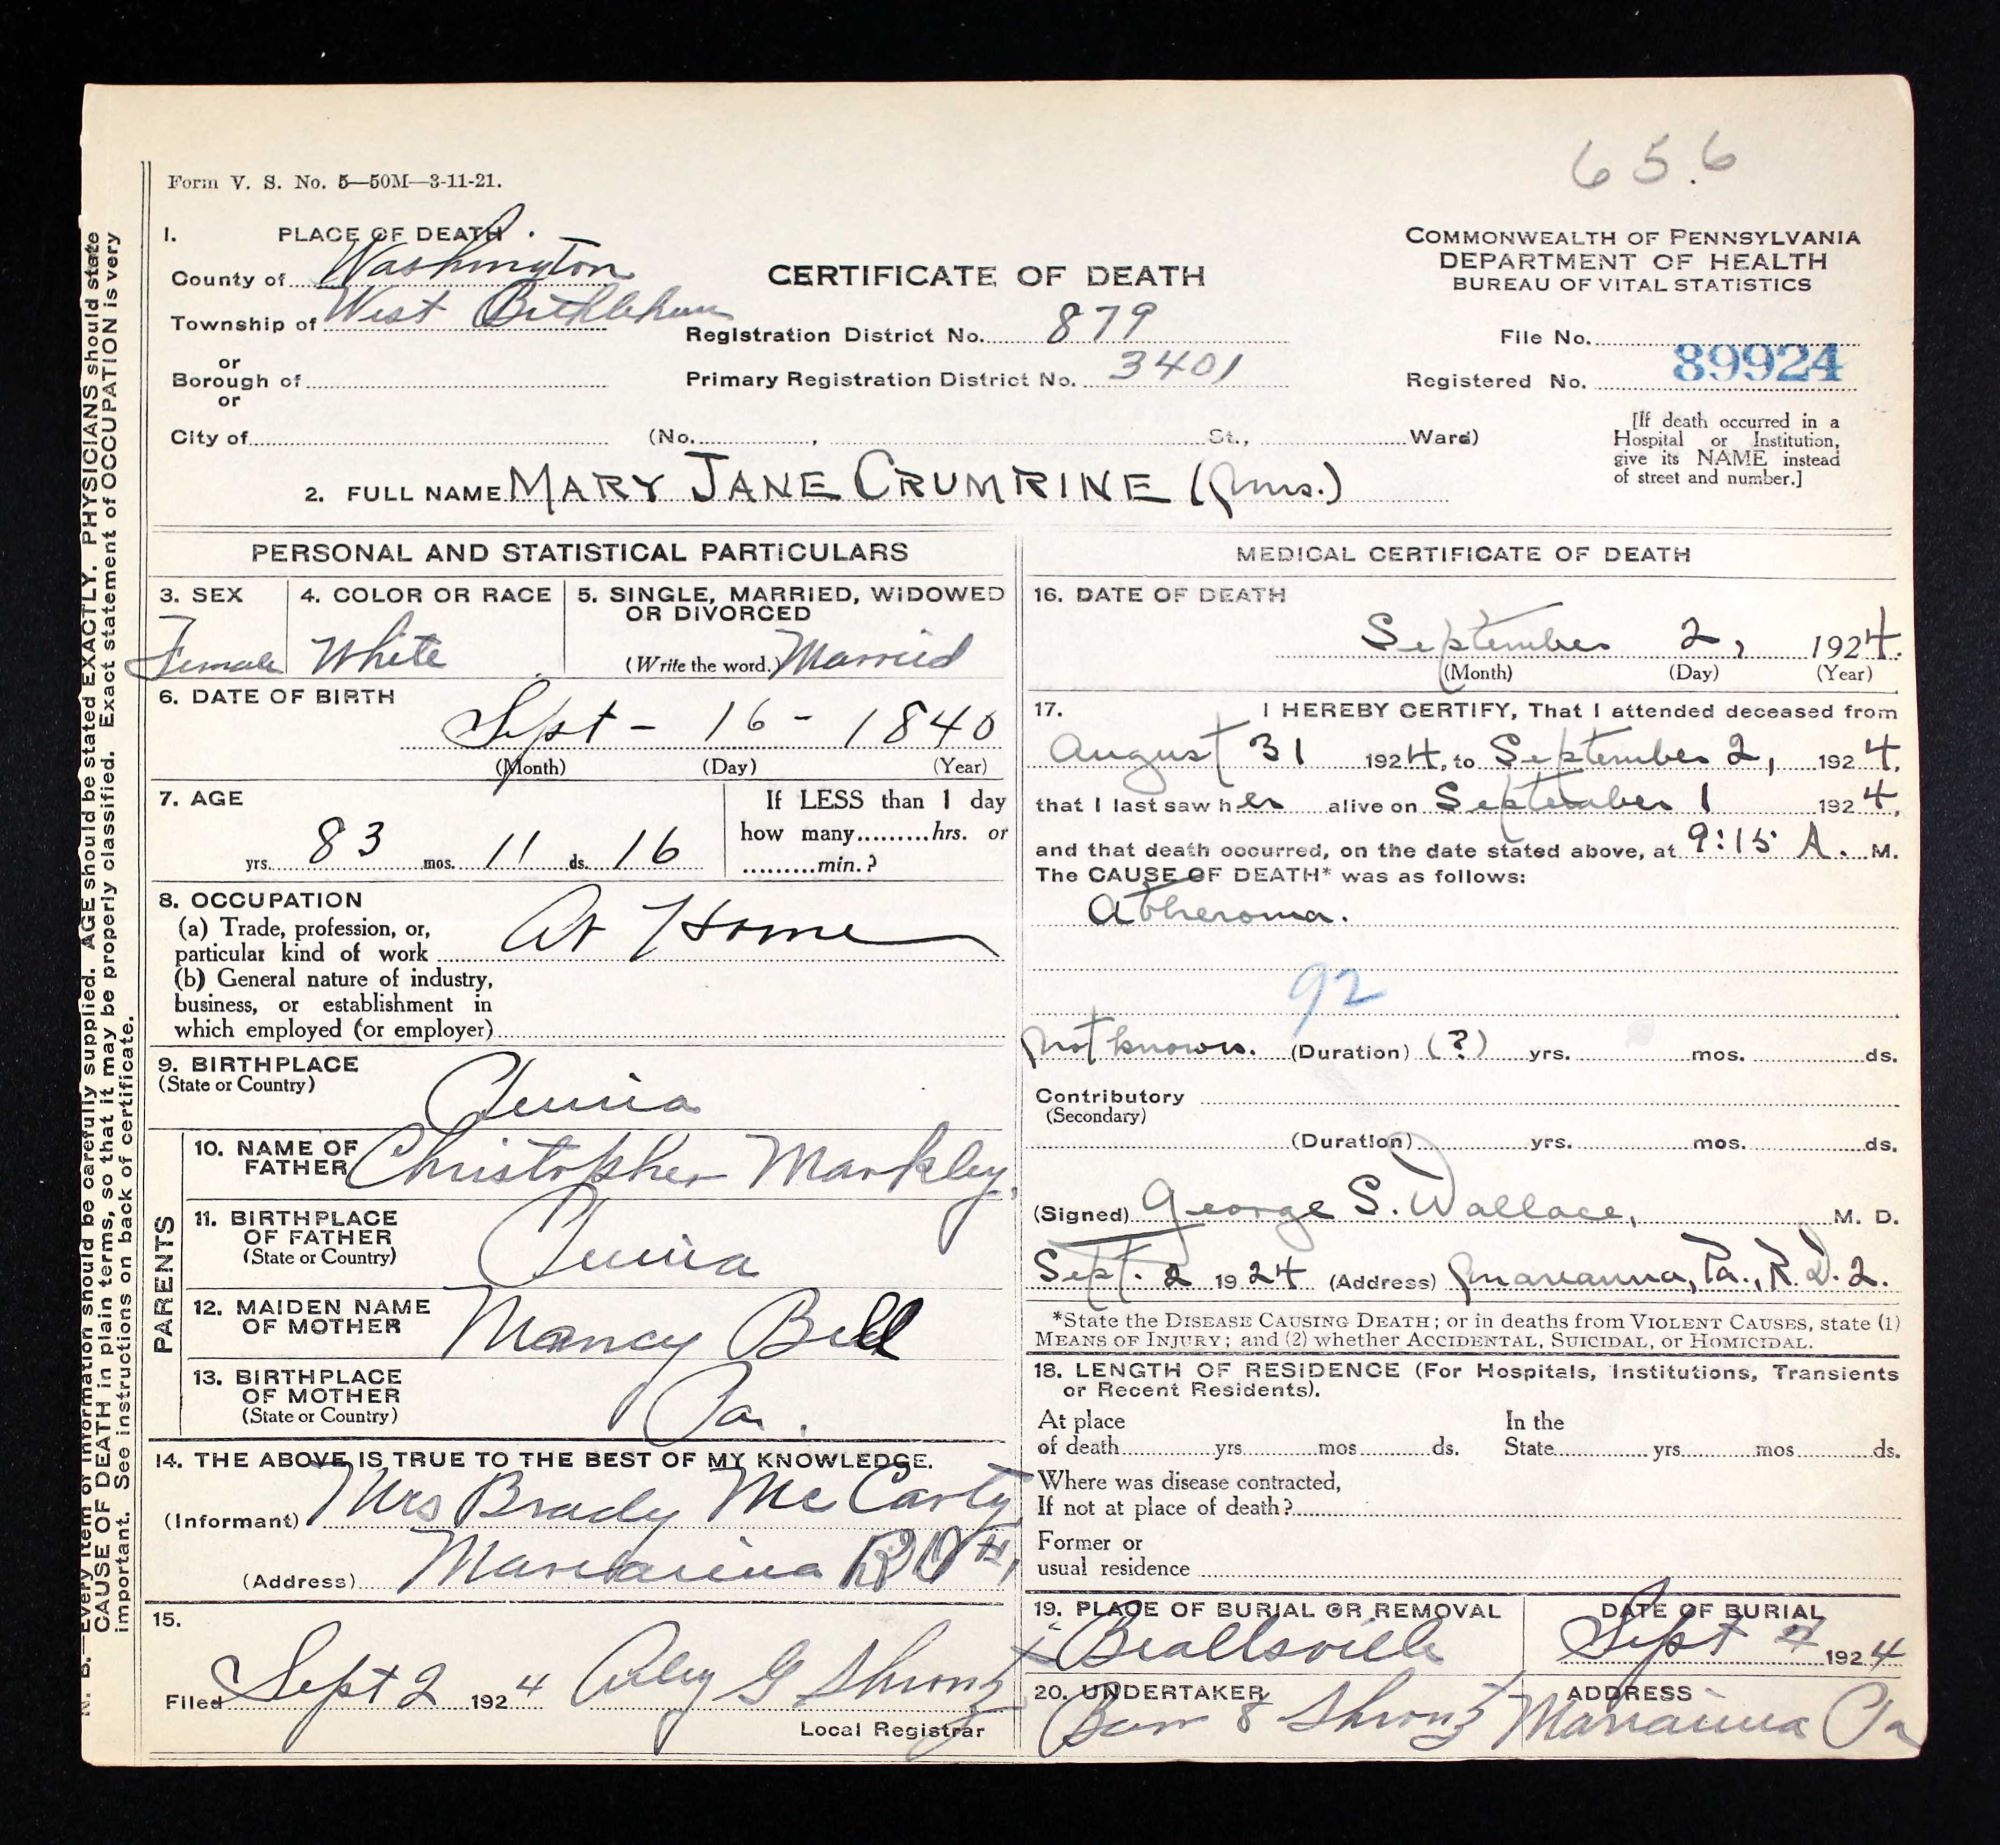 656
Form V. S. No. 5—50M—3-11-21.
1. PLACE OF DEATH.
County of Washington
Township of West Bethlehem
or
Borough of
or
City of (No. , St., Ward)
CERTIFICATE OF DEATH
Registration District No. 879
Primary Registration District No. 3401
COMMONWEALTH OF PENNSYLVANIA
DEPARTMENT OF HEALTH
BUREAU OF VITAL STATISTICS
File No.
89924
Registered No.
[If death occurred in a
Hospital or Institution,
give its NAME instead
of street and number.]
2. FULL NAME MARY JANE CRUMRINE (Mrs.)
PERSONAL AND STATISTICAL PARTICULARS
3. SEX
Female
4. COLOR OR RACE
White
5. SINGLE, MARRIED, WIDOWED
OR DIVORCED
(Write the word.) Married
6. DATE OF BIRTH
Sept - 16 - 1840
(Month) (Day) (Year)
7. AGE
83 yrs. 11 mos. 16 ds.
If LESS than 1 day
how many hrs. or
min.?
8. OCCUPATION
(a) Trade, profession, or,
particular kind of work At Home
(b) General nature of industry,
business, or establishment in
which employed (or employer)
9. BIRTHPLACE
(State or Country)
Penna
PARENTS
10. NAME OF
FATHER Christopher Markley
11. BIRTHPLACE
OF FATHER
(State or Country)
Penna
12. MAIDEN NAME
OF MOTHER Nancy Bell
13. BIRTHPLACE
OF MOTHER
(State or Country)
Pa.
14. THE ABOVE IS TRUE TO THE BEST OF MY KNOWLEDGE.
(Informant) Mrs Brady McCarty
(Address) Marianna RD #1
15.
Filed Sept 2 1924 G Shrontz
Local Registrar
MEDICAL CERTIFICATE OF DEATH
16. DATE OF DEATH
September 2, 1924.
(Month) (Day) (Year)
17. I HEREBY CERTIFY, That I attended deceased from
August 31 1924, to September 2, 1924,
that I last saw her alive on September 1 1924,
and that death occurred, on the date stated above, at 9:15 A. M.
The CAUSE OF DEATH* was as follows:
Atheroma.
92
not known. (Duration) (?) yrs. mos. ds.
Contributory
(Secondary)
(Duration) yrs. mos. ds.
(Signed) George S. Wallace, M. D.
Sept. 2 1924 (Address) Marianna, Pa., R.D. 2.
*State the DISEASE CAUSING DEATH; or in deaths from VIOLENT CAUSES, state (1)
MEANS OF INJURY; and (2) whether ACCIDENTAL, SUICIDAL, or HOMICIDAL.
18. LENGTH OF RESIDENCE (For Hospitals, Institutions, Transients
or Recent Residents).
At place
of death yrs mos ds.
In the
State yrs mos ds.
Where was disease contracted,
If not at place of death?
Former or
usual residence
19. PLACE OF BURIAL OR REMOVAL
Beallsville
DATE OF BURIAL
Sept 4 1924
20. UNDERTAKER
& Shrontz
ADDRESS
Marianna Pa
N. B.—Every item of information should be carefully supplied. AGE should be stated EXACTLY. PHYSICIANS should state
CAUSE OF DEATH in plain terms, so that it may be properly classified. Exact statement of OCCUPATION is very
important. See instructions on back of certificate.